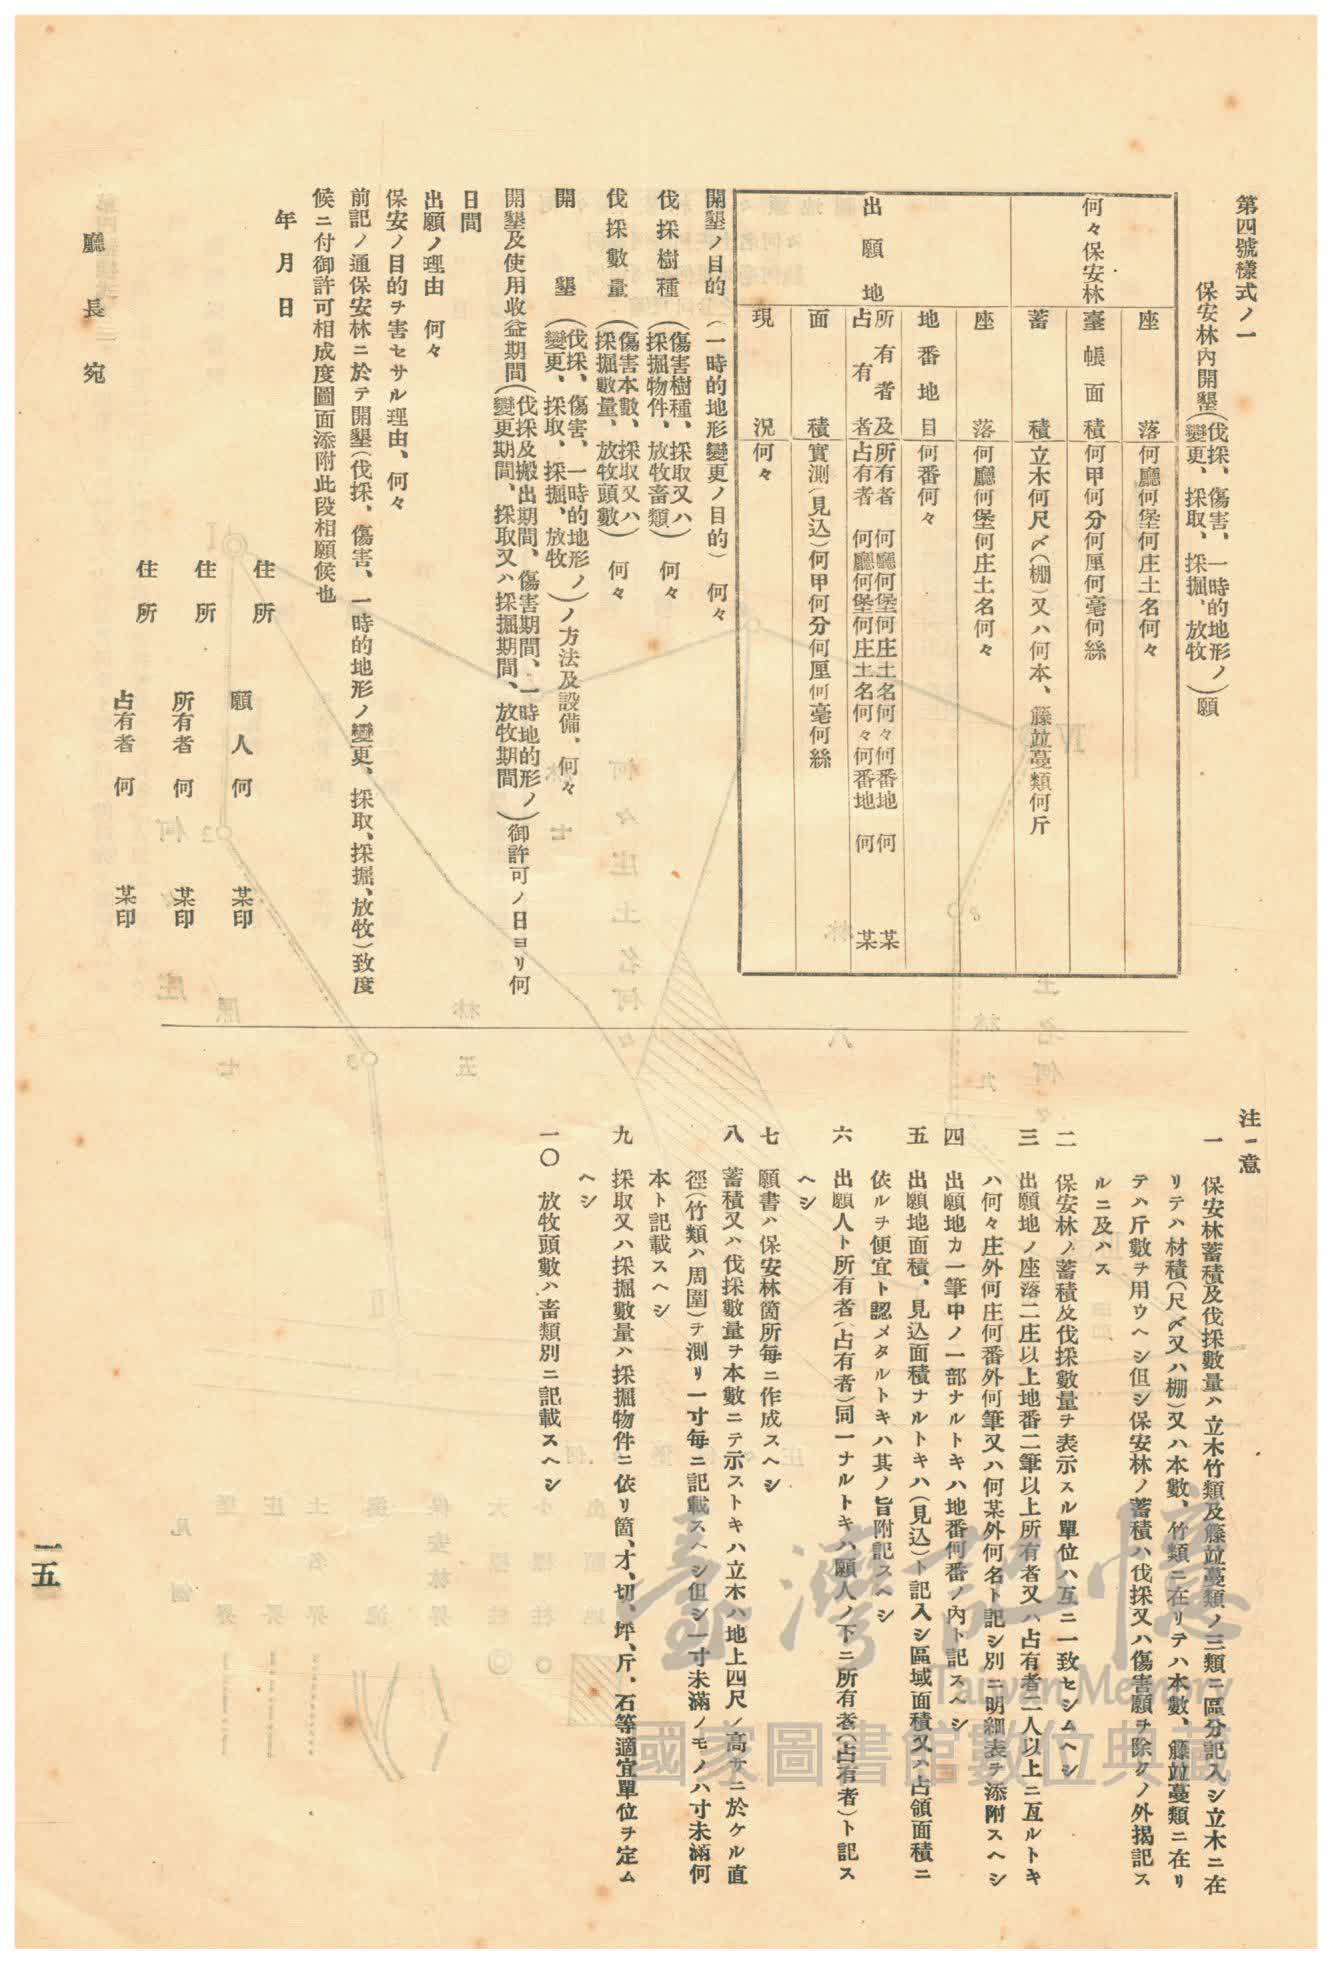 第四號樣式ノ一
保安林內開墾(伐採、傷害、一時的地形ノ變更、採取、採掘、放牧)願
何々保安林
座落
何廳何堡何庄土名何々
臺帳面積
何甲何分何厘何毫何絲
蓄積
立木何尺〆(棚)又ハ何本、籐竝蔓類何斤
出願地
座落
何廳何堡何庄土名何々
地番地目
何番何々
所有者及占有者
所有者 何廳何堡何庄土名何々何番地 何某
占有者 何廳何堡何庄土名何々何番地 何某
面積
實測(見込)何甲何分何厘何毫何絲
現況
何々
開墾ノ目的(一時的地形變更ノ目的) 何々
伐採樹種(傷害樹種、採取又ハ採掘物件、放牧畜類) 何々
伐採數量(傷害本數、採取又ハ採掘數量、放牧頭數) 何々
開墾(伐採、傷害、一時的地形ノ變更、採取、採掘、放牧)ノ方法及設備、何々
開墾及使用收益期間(伐採及搬出期間、傷害期間、一時地的形ノ變更期間、採取又ハ採掘期間、放牧期間)御許可ノ日ヨリ何
日間
出願ノ理由 何々
保安ノ目的チ害セサル理由、何々
前記ノ通保安林ニ於テ開墾(伐採、傷害、一時的地形ノ變更、採取、採掘、放牧)致度
候ニ付御許可相成度圖面添附此段相願候也
年 月 日
住所
願人 何 某印
住所
所有者 何 某印
住所
占有者 何 某印
廳長宛
注意
一 保安林蓄積及伐採數量ハ立木竹類及籐竝蔓類ノ三類ニ區分記入シ立木ニ在
リテハ材積(尺〆又ハ棚)又ハ本數、竹類ニ在リテハ本數、籐竝蔓類ニ在リ
テハ斤數チ用ウヘシ但シ保安林ノ蓄積ハ伐採又ハ傷害願チ除クノ外揭記ス
ルニ及ハス
二 保安林ノ蓄積及伐採數量チ表示スル單位ハ互ニ一致セシムヘシ
三 出願地ノ座落二庄以上地番二筆以上所有者又ハ占有者二人以上ニ亙ルトキ
ハ何々庄外何庄何番外何筆又ハ何某外何名ト記シ別ニ明細表チ添附スヘシ
四 出願地カ一筆中ノ一部ナルトキハ地番何番ノ內ト記スヘシ
五 出願地面積、見込面積ナルトキハ(見込)ト記入シ區域面積又ハ占領面積ニ
依ルチ便宜ト認メタルトキハ其ノ旨附記スヘシ
六 出願人ト所有者(占有者)同一ナルトキハ願人ノ下ニ所有者(占有者)ト記ス
ヘシ
七 願書ハ保安林箇所每ニ作成スヘシ
八 蓄積又ハ伐採數量チ本數ニテ示ストキハ立木ハ地上四尺ノ高サニ於ケル直
徑(竹類ハ周圍)チ測リ一寸每ニ記載スヘシ但シ一寸未滿ノモノハ寸未滿何
本ト記載スヘシ
九 採取又ハ採掘數量ハ採掘物件ニ依リ箇、才、切、坪、斤、石等適宜單位チ定ム
ヘシ
一〇 放牧頭數ハ畜類別ニ記載スヘシ
一五
臺灣記憶
Taiwan Memory
國家圖書館數位典藏